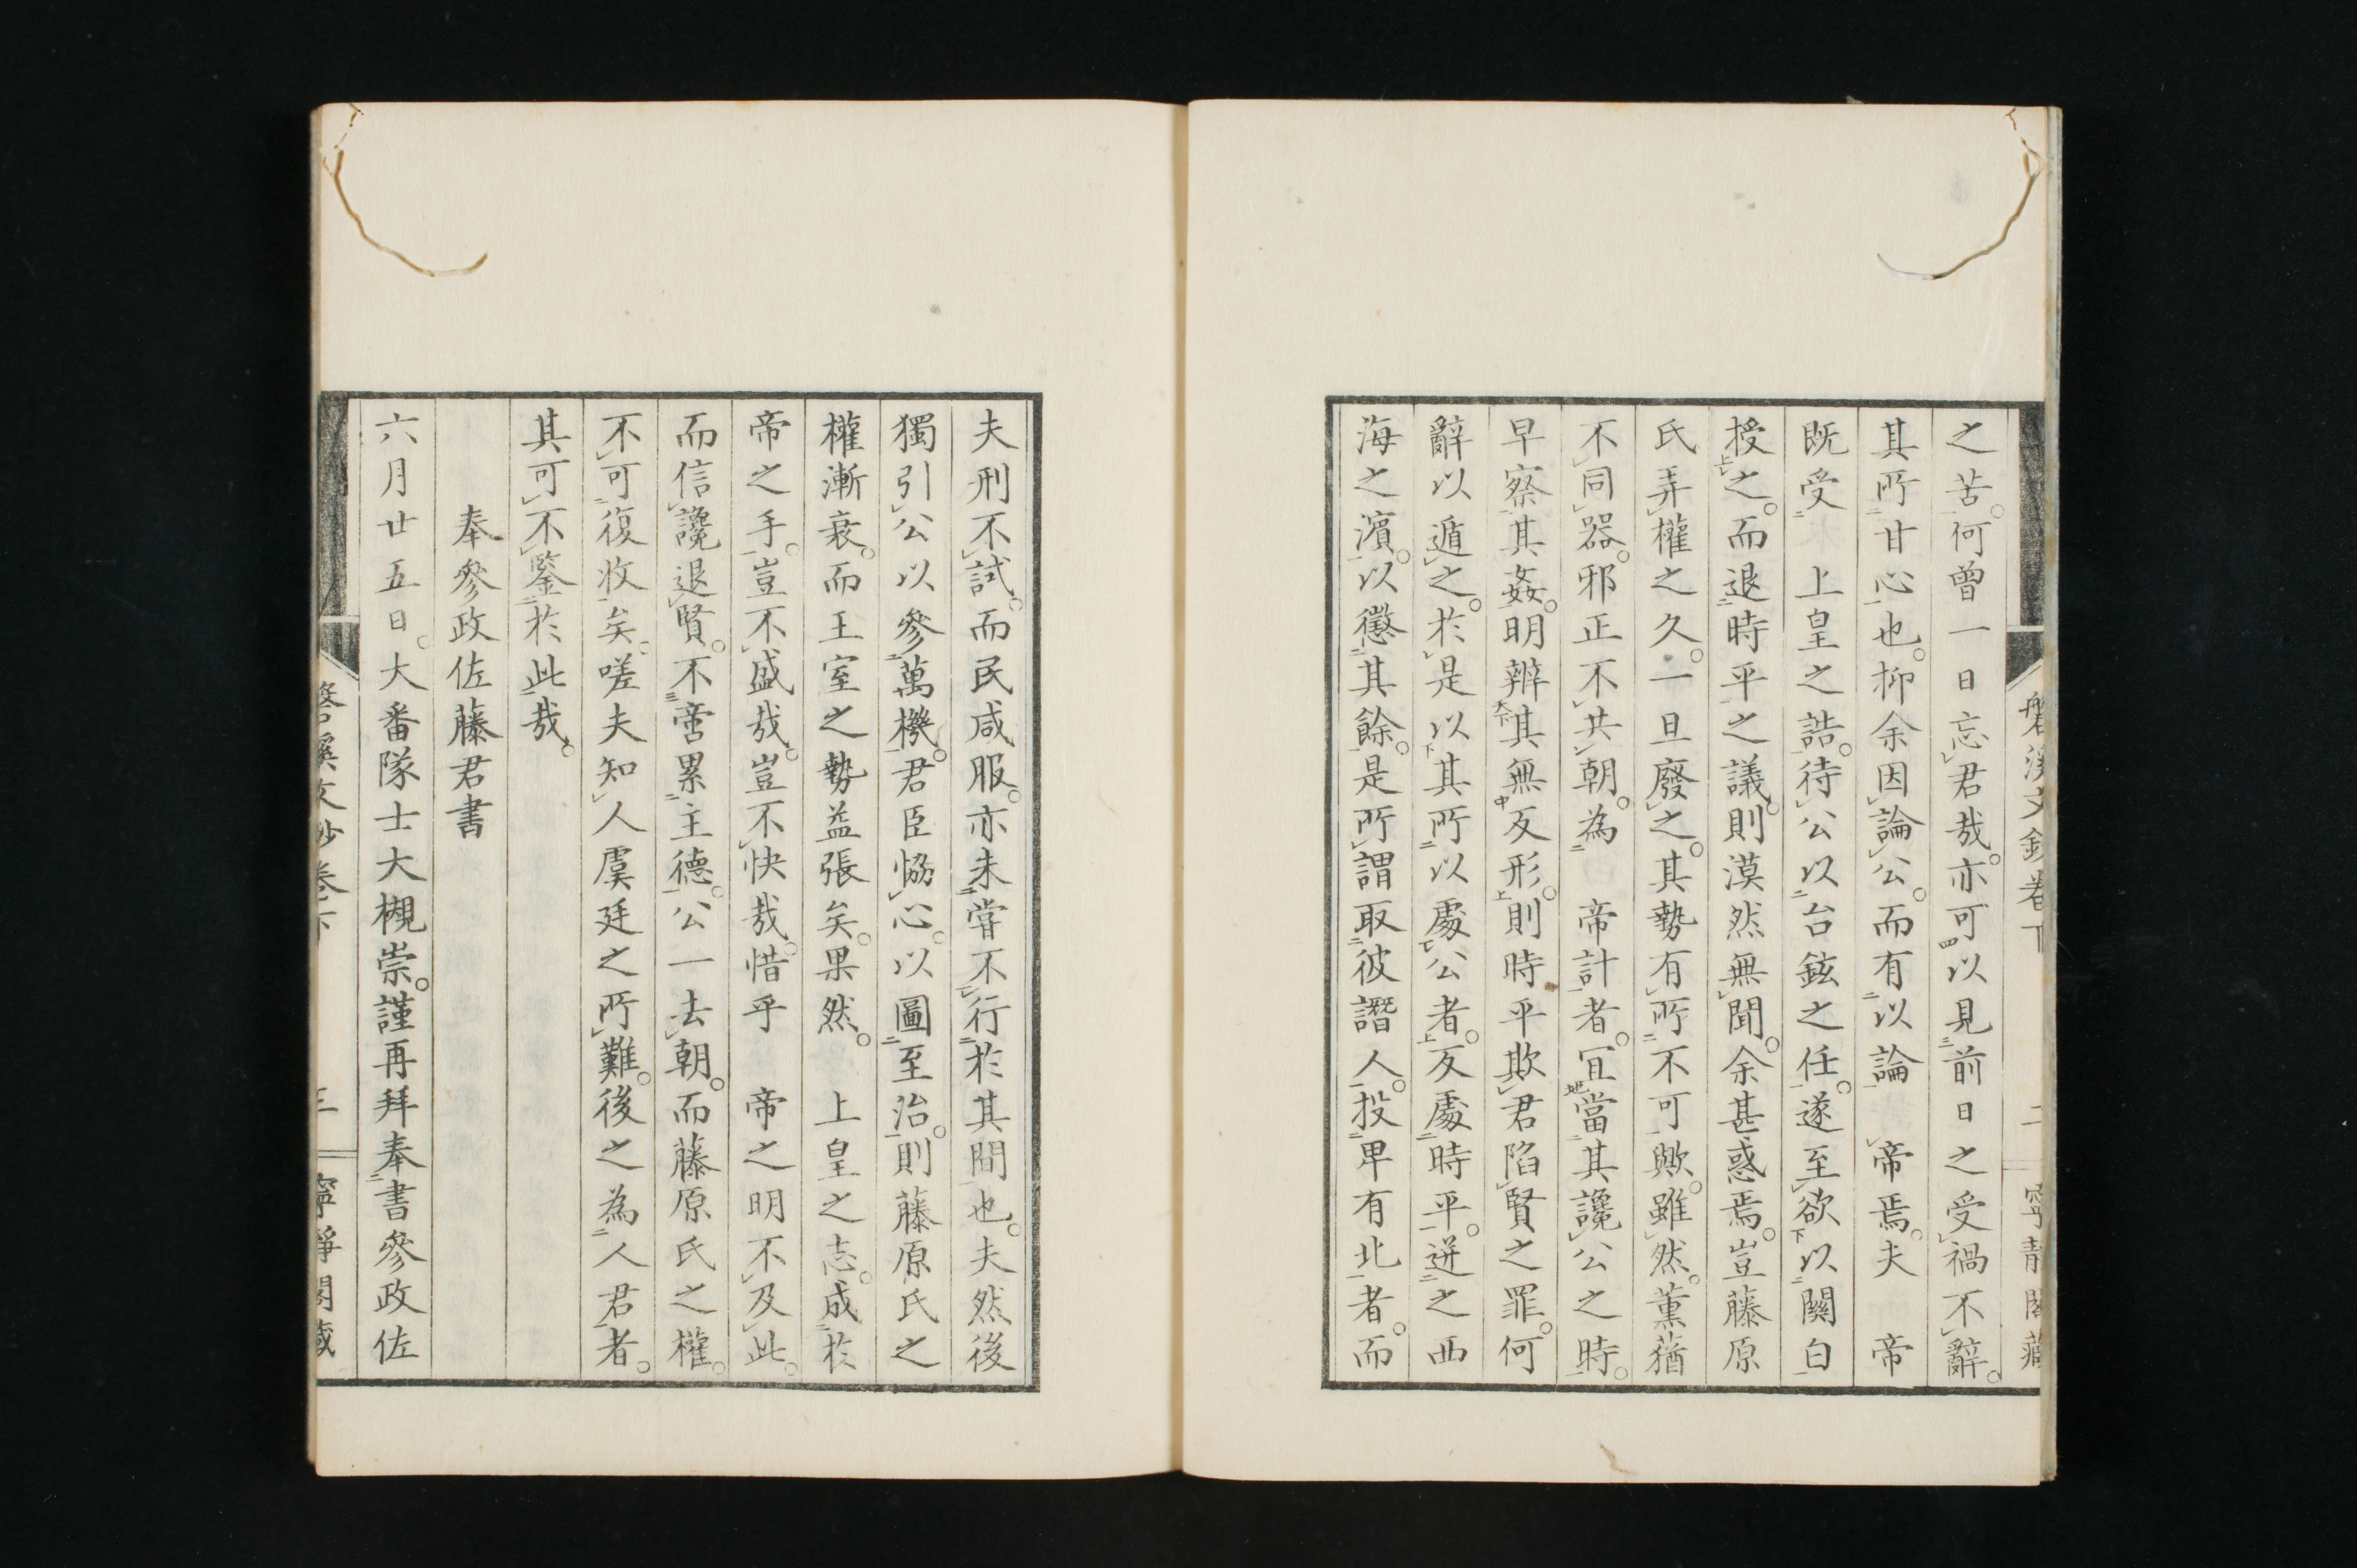 之苦。何曾一日忘君哉。亦可以見前日之受禍不辭。
其所甘心也。抑余因論公。而有以論　帝焉。夫　帝
既受　上皇之誥。待公以台鉉之任。遂至欲以關白
授之。而退時平之議。則漠然無聞。余甚惑焉。豈藤原
氏弄權之久。一旦廢之。其勢有所不可歟。雖然。薰蕕
不同器。邪正不共朝。為　帝計者。宜當其讒公之時。
早察其姦。明辨其無反形。則時平欺君陷賢之罪。何
辭以遁之。於是以其所以處公者。反處時平。迸之西
海之濱。以懲其餘。是所謂取彼譖人。投畀有北者。而
磐溪文鈔卷下
二
寧靜閣藏
夫刑不試。而民咸服。亦未嘗不行於其間也。夫然後
獨引公以參萬機。君臣協心。以圖至治。則藤原氏之
權漸衰。而王室之勢益張矣。果然。　上皇之志。成於
帝之手。豈不盛哉。豈不快哉。惜乎　帝之明不及此。
而信讒退賢。不啻累主德。公一去朝。而藤原氏之權。
不可復收矣。嗟夫知人虞廷之所難。後之為人君者。
其可不鑒於此哉。
奉參政佐藤君書
六月廿五日。大番隊士大槻崇。謹再拜奉書參政佐
磐溪文鈔卷下
三
寧靜閣藏